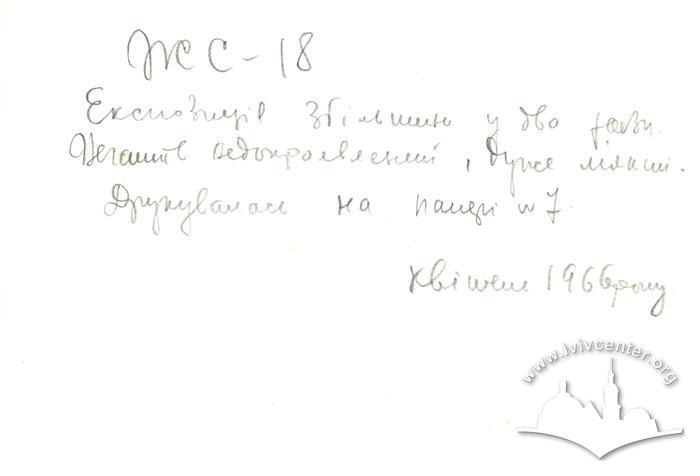 ЖСС-18
Експозиція збільшено у два рази.
Негатив недопроявлений, дуже мягкий.
Друкувалась на папері №7.
Квітень 1966 року
www.lvivcenter.org